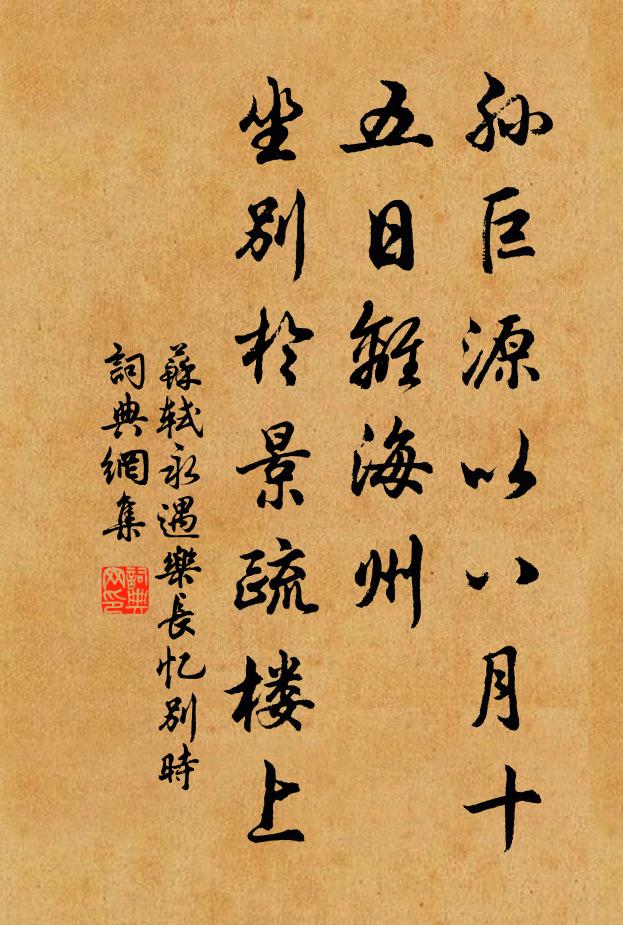 孙巨源以八月十
五日離海州
坐别於景疏楼上
蘇軾永遇樂長忆别時
詞典網集
詞典网印